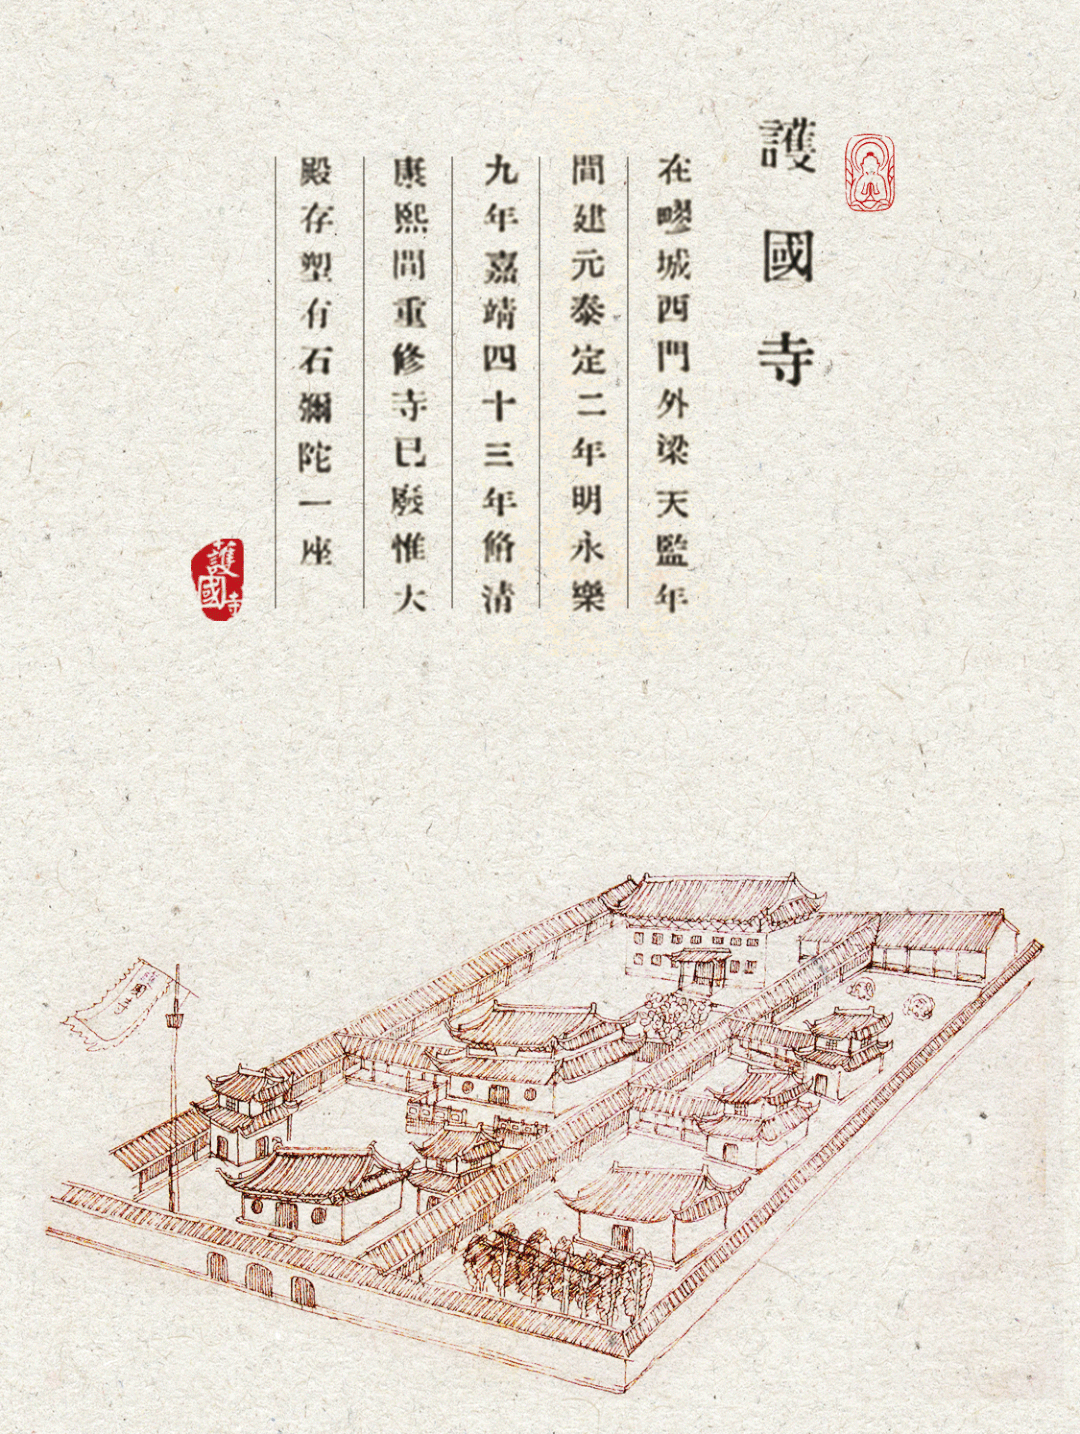 護國寺
在疁城西門外梁天監年
間建元泰定二年明永樂
九年嘉靖四十三年脩清
康熙間重修寺已廢惟大
殿存塑有石彌陀一座
護國寺
護國寺